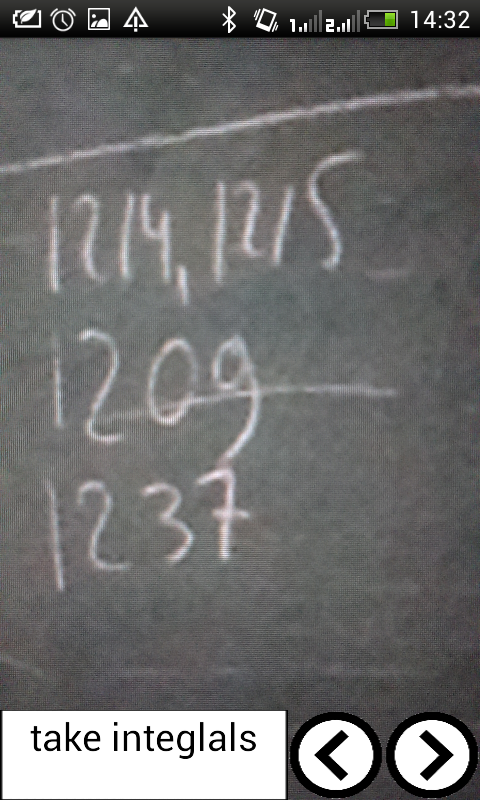 14:32
1214, 1215
1209
1237
take integlals